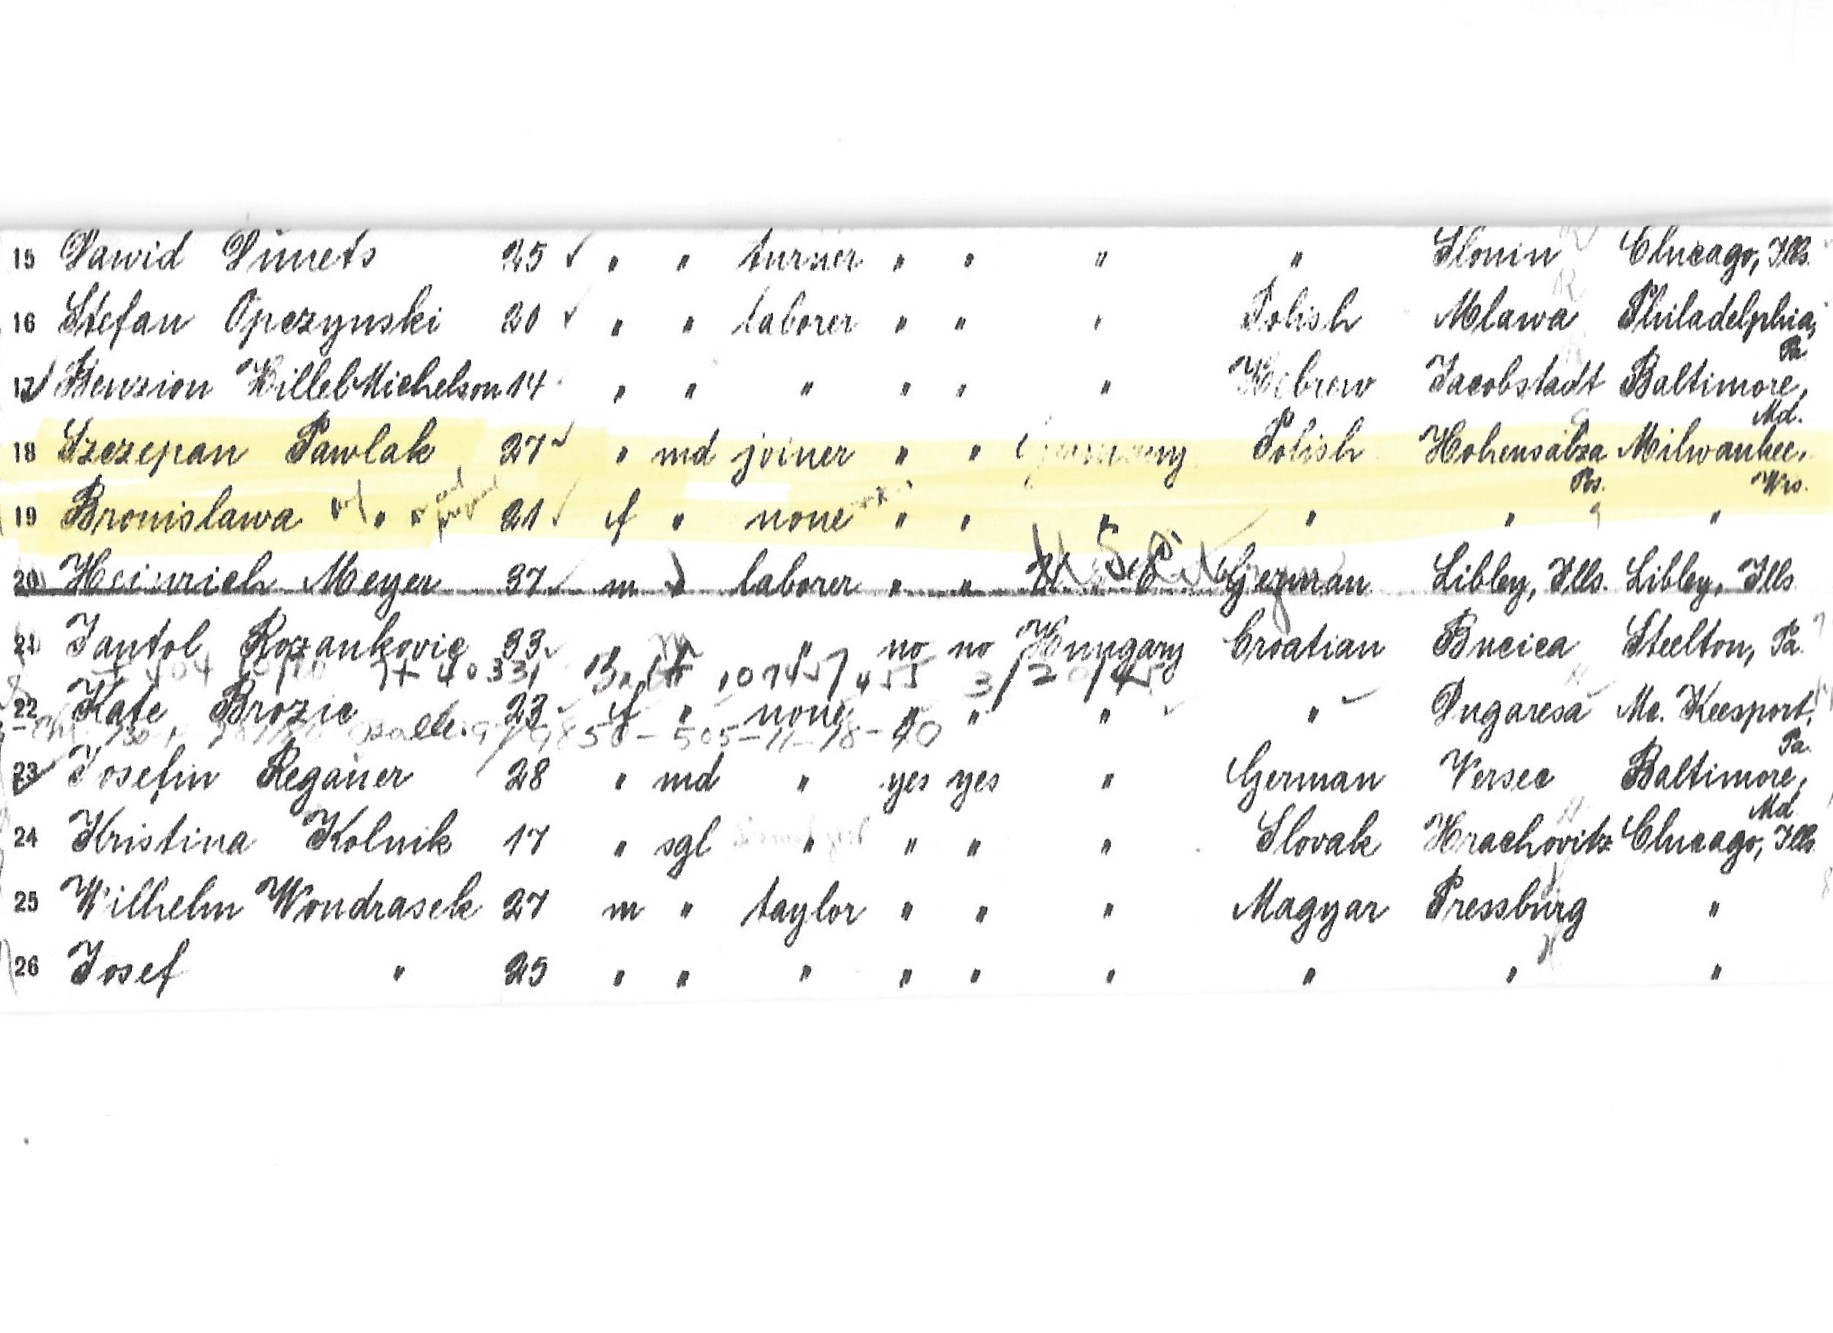 15 Dawid Dimets 25 ✓ " " turner " " " " Slonin Chicago, Ills.
16 Stefan Opczynski 20 ✓ " " laborer " " " Polish Mlawa Philadelphia,
Pa.
17 Benzion Hillel Michelson 14 " " " " " " Hebrew Jacobstadt Baltimore,
Md.
18 Szczepan Pawlak 27 ✓ " md joiner " " Germany Polish Hohensalza Milwaukee,
Pos. Wis.
19 Bronislawa " 21 ✓ f " none " " " " " "
20 Heinrich Meyer 37 ✓ m " laborer " " U. S. Citizen German Libley, Ills. Libley, Ills.
21 Jantol Rozankovic 33 " " " no no Hungary Croatian Bucica Steelton, Pa.
3/20/45
22 Kate Brozic 23 f " none " " " " Dugaresa Mc. Keesport,
Pa.
505-11-18-40
23 Josefin Regauer 28 " md " yes yes " German Versec Baltimore,
Md.
24 Kristina Kolnik 17 " sgl " " " " Slovak Hrachovitz Chicago, Ills.
25 Wilhelm Wondrasek 27 m " taylor " " " Magyar Pressburg "
26 Josef " 25 " " " " " " " " "